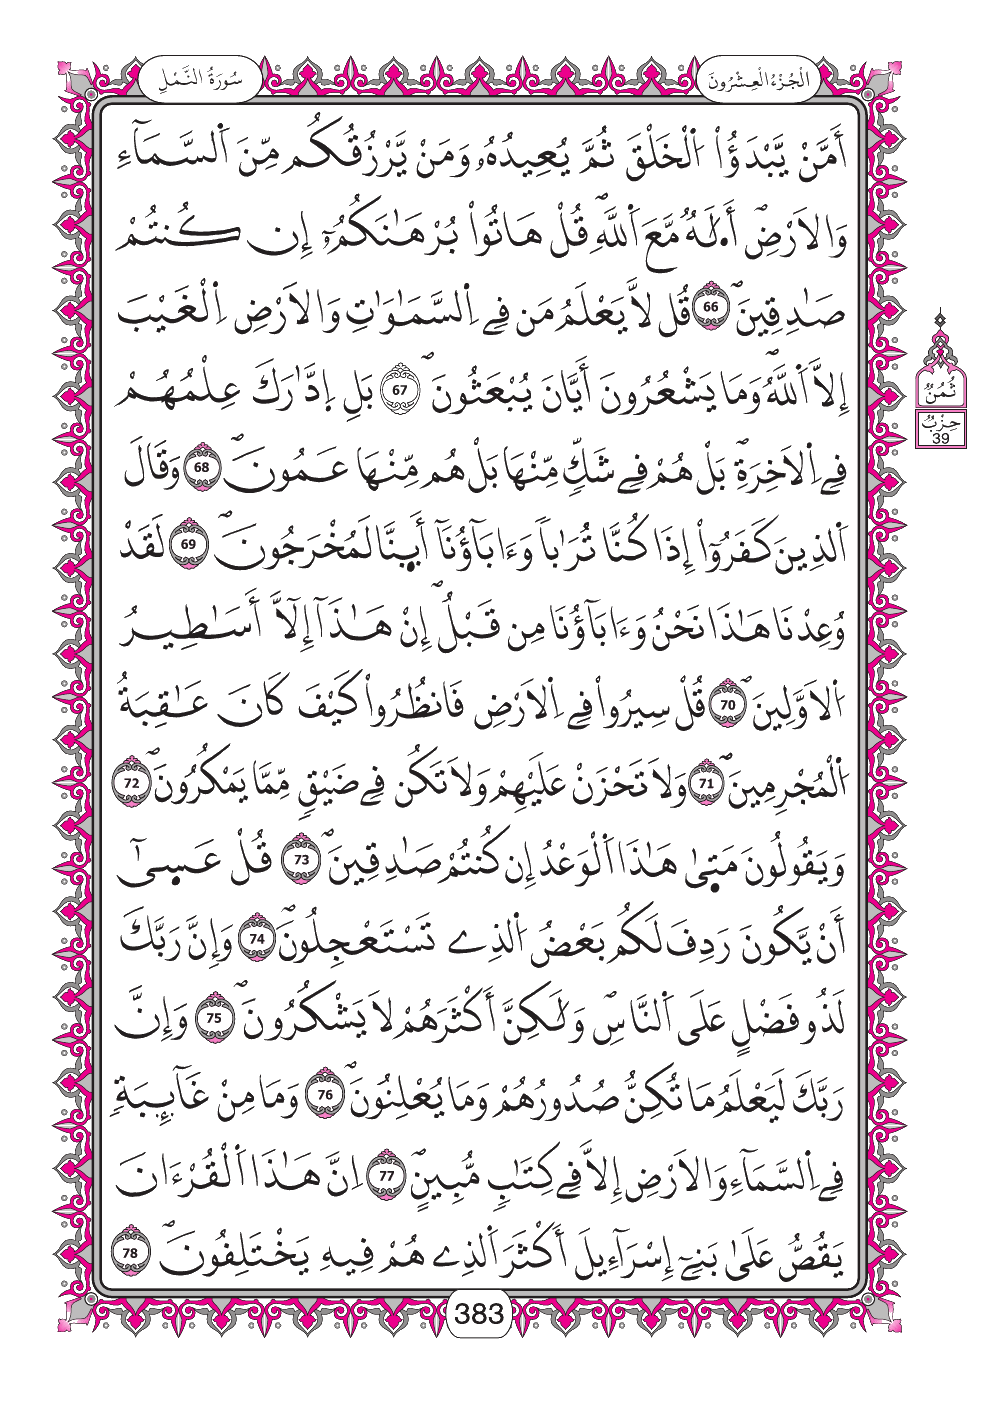 سُورَةُ النَّمْلِ
الْجُزْءُ الْعِشْرُونَ
أَمَّنْ يَّبْدَؤُاْ اُ۬لْخَلْقَ ثُمَّ يُعِيدُهُۥ وَمَنْ يَّرْزُقُكُم مِّنَ اَ۬لسَّمَآءِ
وَالَارْضِۖ أَ.لَٰهٞ مَّعَ اَ۬للَّهِۖ قُلْ هَاتُواْ بُرْهَٰنَكُمُۥٓ إِن كُنتُمْ
صَٰدِقِينَۖ 66 قُل لَّا يَعْلَمُ مَن فِے اِ۬لسَّمَٰوَٰتِ وَالَارْضِ اِ۬لْغَيْبَ
إِلَّا اَ۬للَّهُۖ وَمَا يَشْعُرُونَ أَيَّانَ يُبْعَثُونَۖ 67 بَلِ اِ۪دَّٰرَكَ عِلْمُهُمْ
فِے اِ۬لَاخِرَةِۖ بَلْ هُمْ فِے شَكّٖ مِّنْهَا بَلْ هُم مِّنْهَا عَمُونَۖ 68 وَقَالَ
اَ۬لذِينَ كَفَرُوٓاْ إِذَا كُنَّا تُرَٰباٗ وَءَابَآؤُنَآ أَئِنَّا لَمُخْرَجُونَۖ 69 لَقَدْ
وُعِدْنَا هَٰذَا نَحْنُ وَءَابَآؤُنَا مِن قَبْلُۖ إِنْ هَٰذَآ إِلَّآ أَسَٰطِيرُ
اُ۬لَاوَّلِينَۖ 70 قُلْ سِيرُواْ فِے اِ۬لَارْضِ فَانظُرُواْ كَيْفَ كَانَ عَٰقِبَةُ
اُ۬لْمُجْرِمِينَۖ 71 وَلَا تَحْزَنْ عَلَيْهِمْ وَلَا تَكُن فِے ضَيْقٖ مِّمَّا يَمْكُرُونَۖ 72
وَيَقُولُونَ مَت۪يٰ هَٰذَا اَ۬لْوَعْدُ إِن كُنتُمْ صَٰدِقِينَۖ 73 قُلْ عَس۪يٰٓ
أَنْ يَّكُونَ رَدِفَ لَكُم بَعْضُ اُ۬لذِے تَسْتَعْجِلُونَۖ 74 وَإِنَّ رَبَّكَ
لَذُو فَضْلٍ عَلَى اَ۬لنَّاسِۖ وَلَٰكِنَّ أَكْثَرَهُمْ لَا يَشْكُرُونَۖ 75 وَإِنَّ
رَبَّكَ لَيَعْلَمُ مَا تُكِنُّ صُدُورُهُمْ وَمَا يُعْلِنُونَۖ 76 وَمَا مِنْ غَآئِبَةٖ
فِے اِ۬لسَّمَآءِ وَالَارْضِ إِلَّا فِے كِتَٰبٖ مُّبِينٍۖ 77 اِنَّ هَٰذَا اَ۬لْقُرْءَانَ
يَقُصُّ عَلَىٰ بَنِےٓ إِسْرَآءِيلَ أَكْثَرَ اَ۬لذِے هُمْ فِيهِ يَخْتَلِفُونَۖ 78
ثُمُنُ
حِزْبُ
39
383